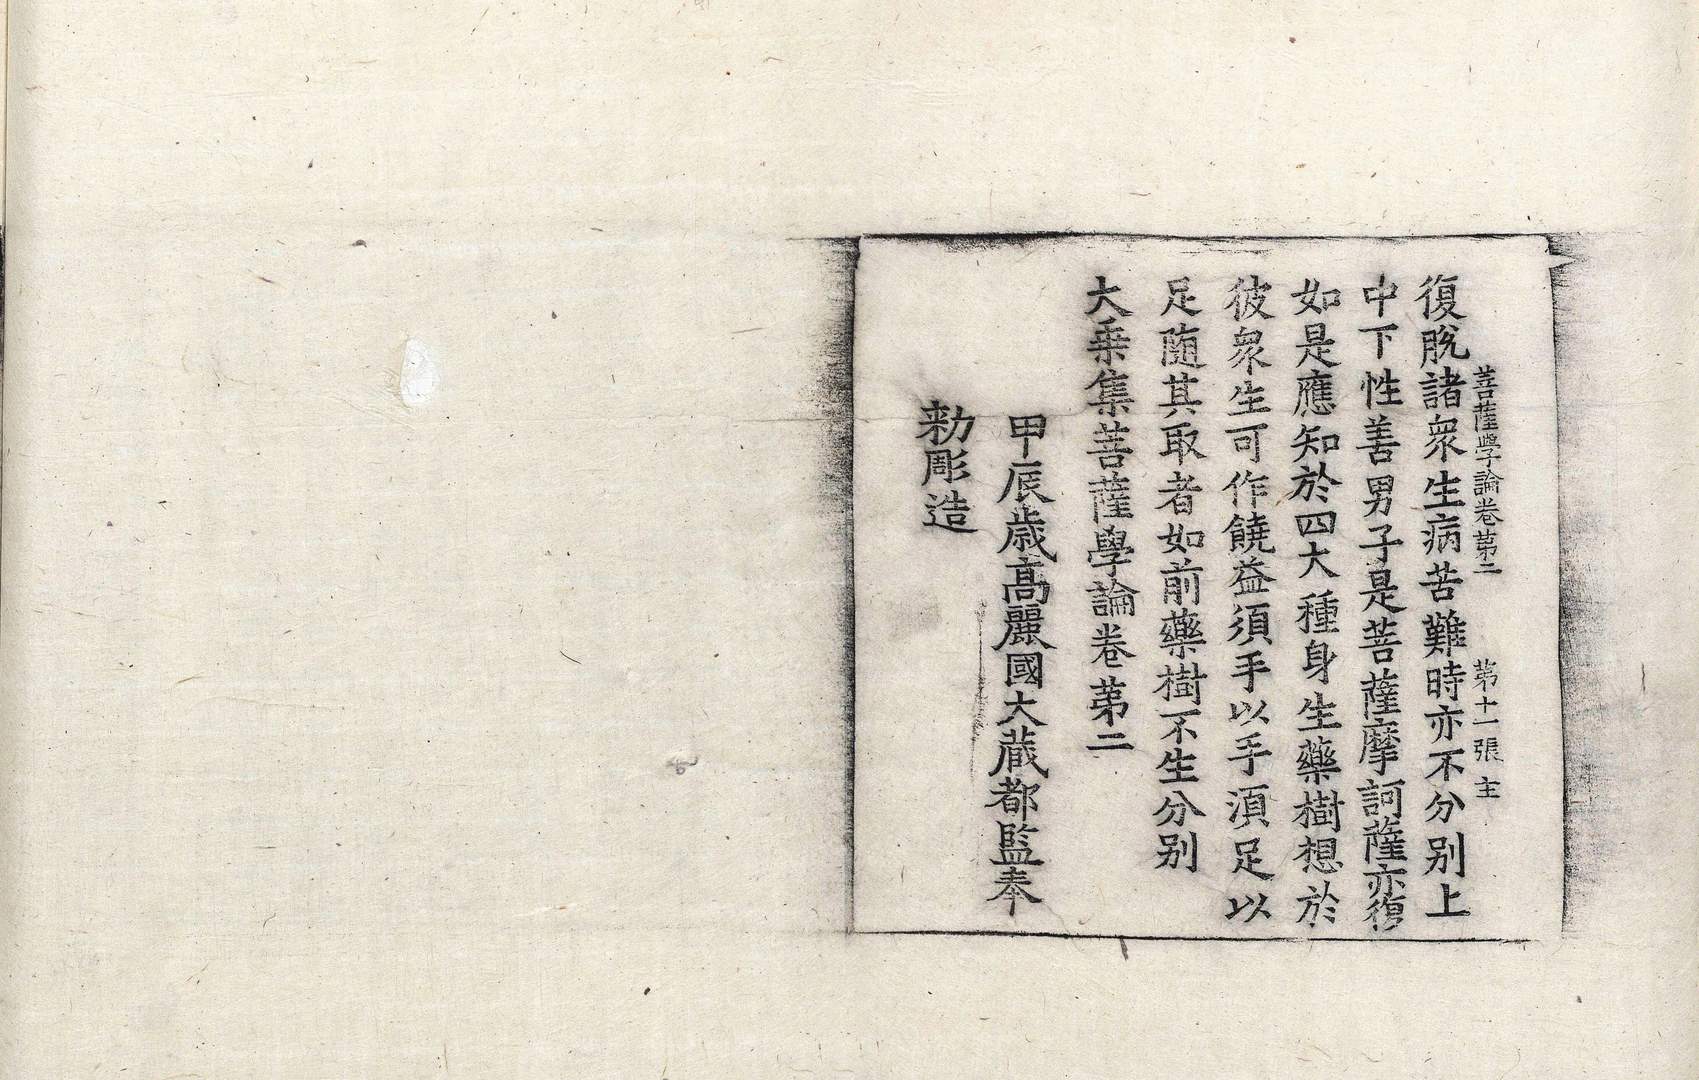 菩薩學論卷苐二 苐十一張 主
復脫諸衆生病苦難時亦不分别上
中下性善男子是菩薩摩訶薩亦復
如是應知於四大種身生藥樹想於
彼衆生可作饒益須手以手湏足以
足随其取者如前藥樹不生分别
大乗集菩薩學論卷苐二
甲辰歳髙麗國大藏都監奉
勑彫造